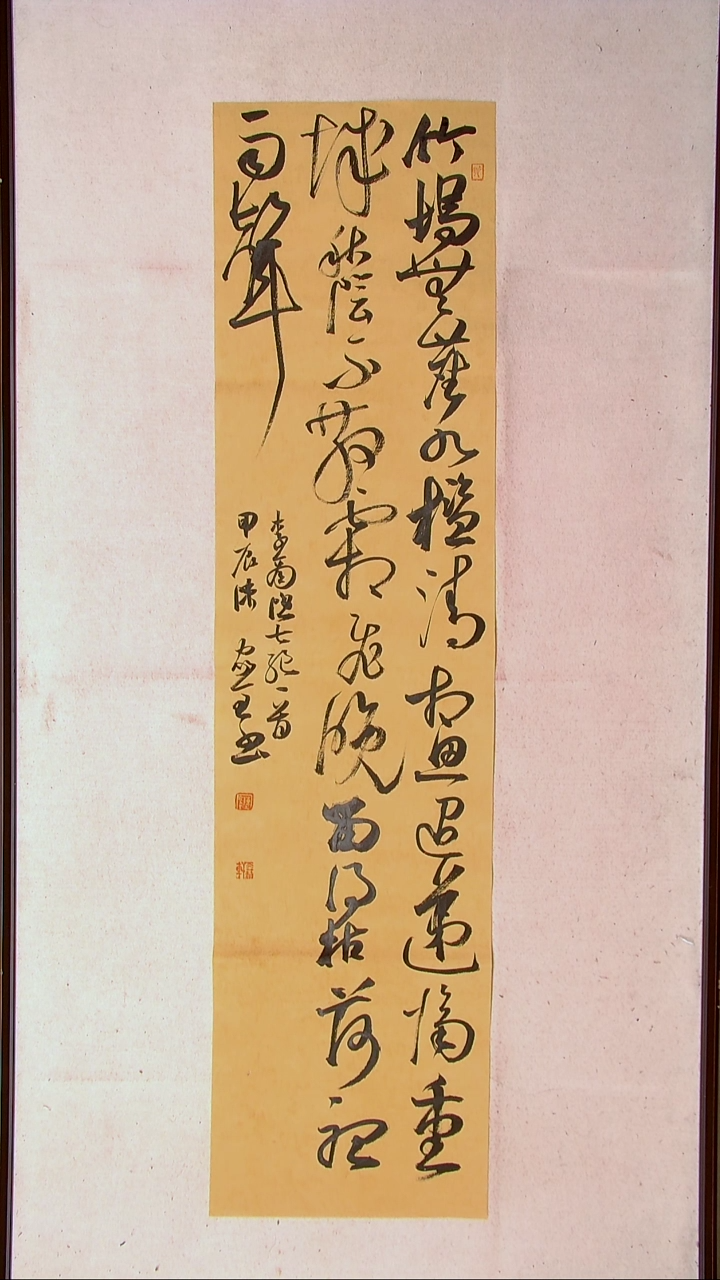 竹塢無塵水檻清相思迢遞隔重
城秋陰不散霜飛晚留得枯荷聽
雨聲
李商隱七絕一首
甲辰 書